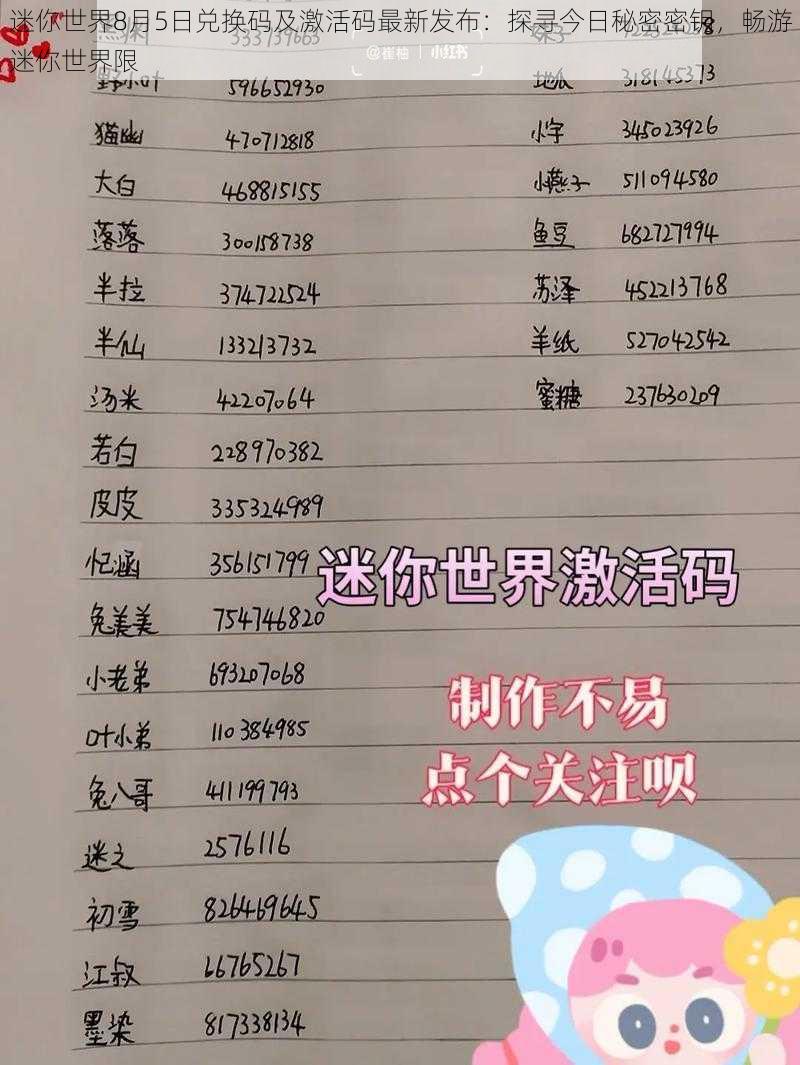 迷你世界8月5日兑换码及激活码最新发布：探寻今日秘密密钥，畅游
迷你世界限
@崔柚 | 小红书
野小叶 596652930
地瓜 318145373
猫幽 470712818
小字 345023926
大白 468815155
小燕子 511094580
落落 300158738
鱼豆 682727994
半拉 374722524
苏泽 452213768
半仙 133213732
羊纸 527042542
汤米 42207064
蜜糖 237630209
若白 228970382
皮皮 335324989
忆涵 356151799
迷你世界激活码
兔美美 754746820
小老弟 693207068
制作不易
叶小弟 110384985
点个关注呗
兔八哥 411199793
迷之 2576116
初雪 826469645
江叔 66765267
墨染 817338134